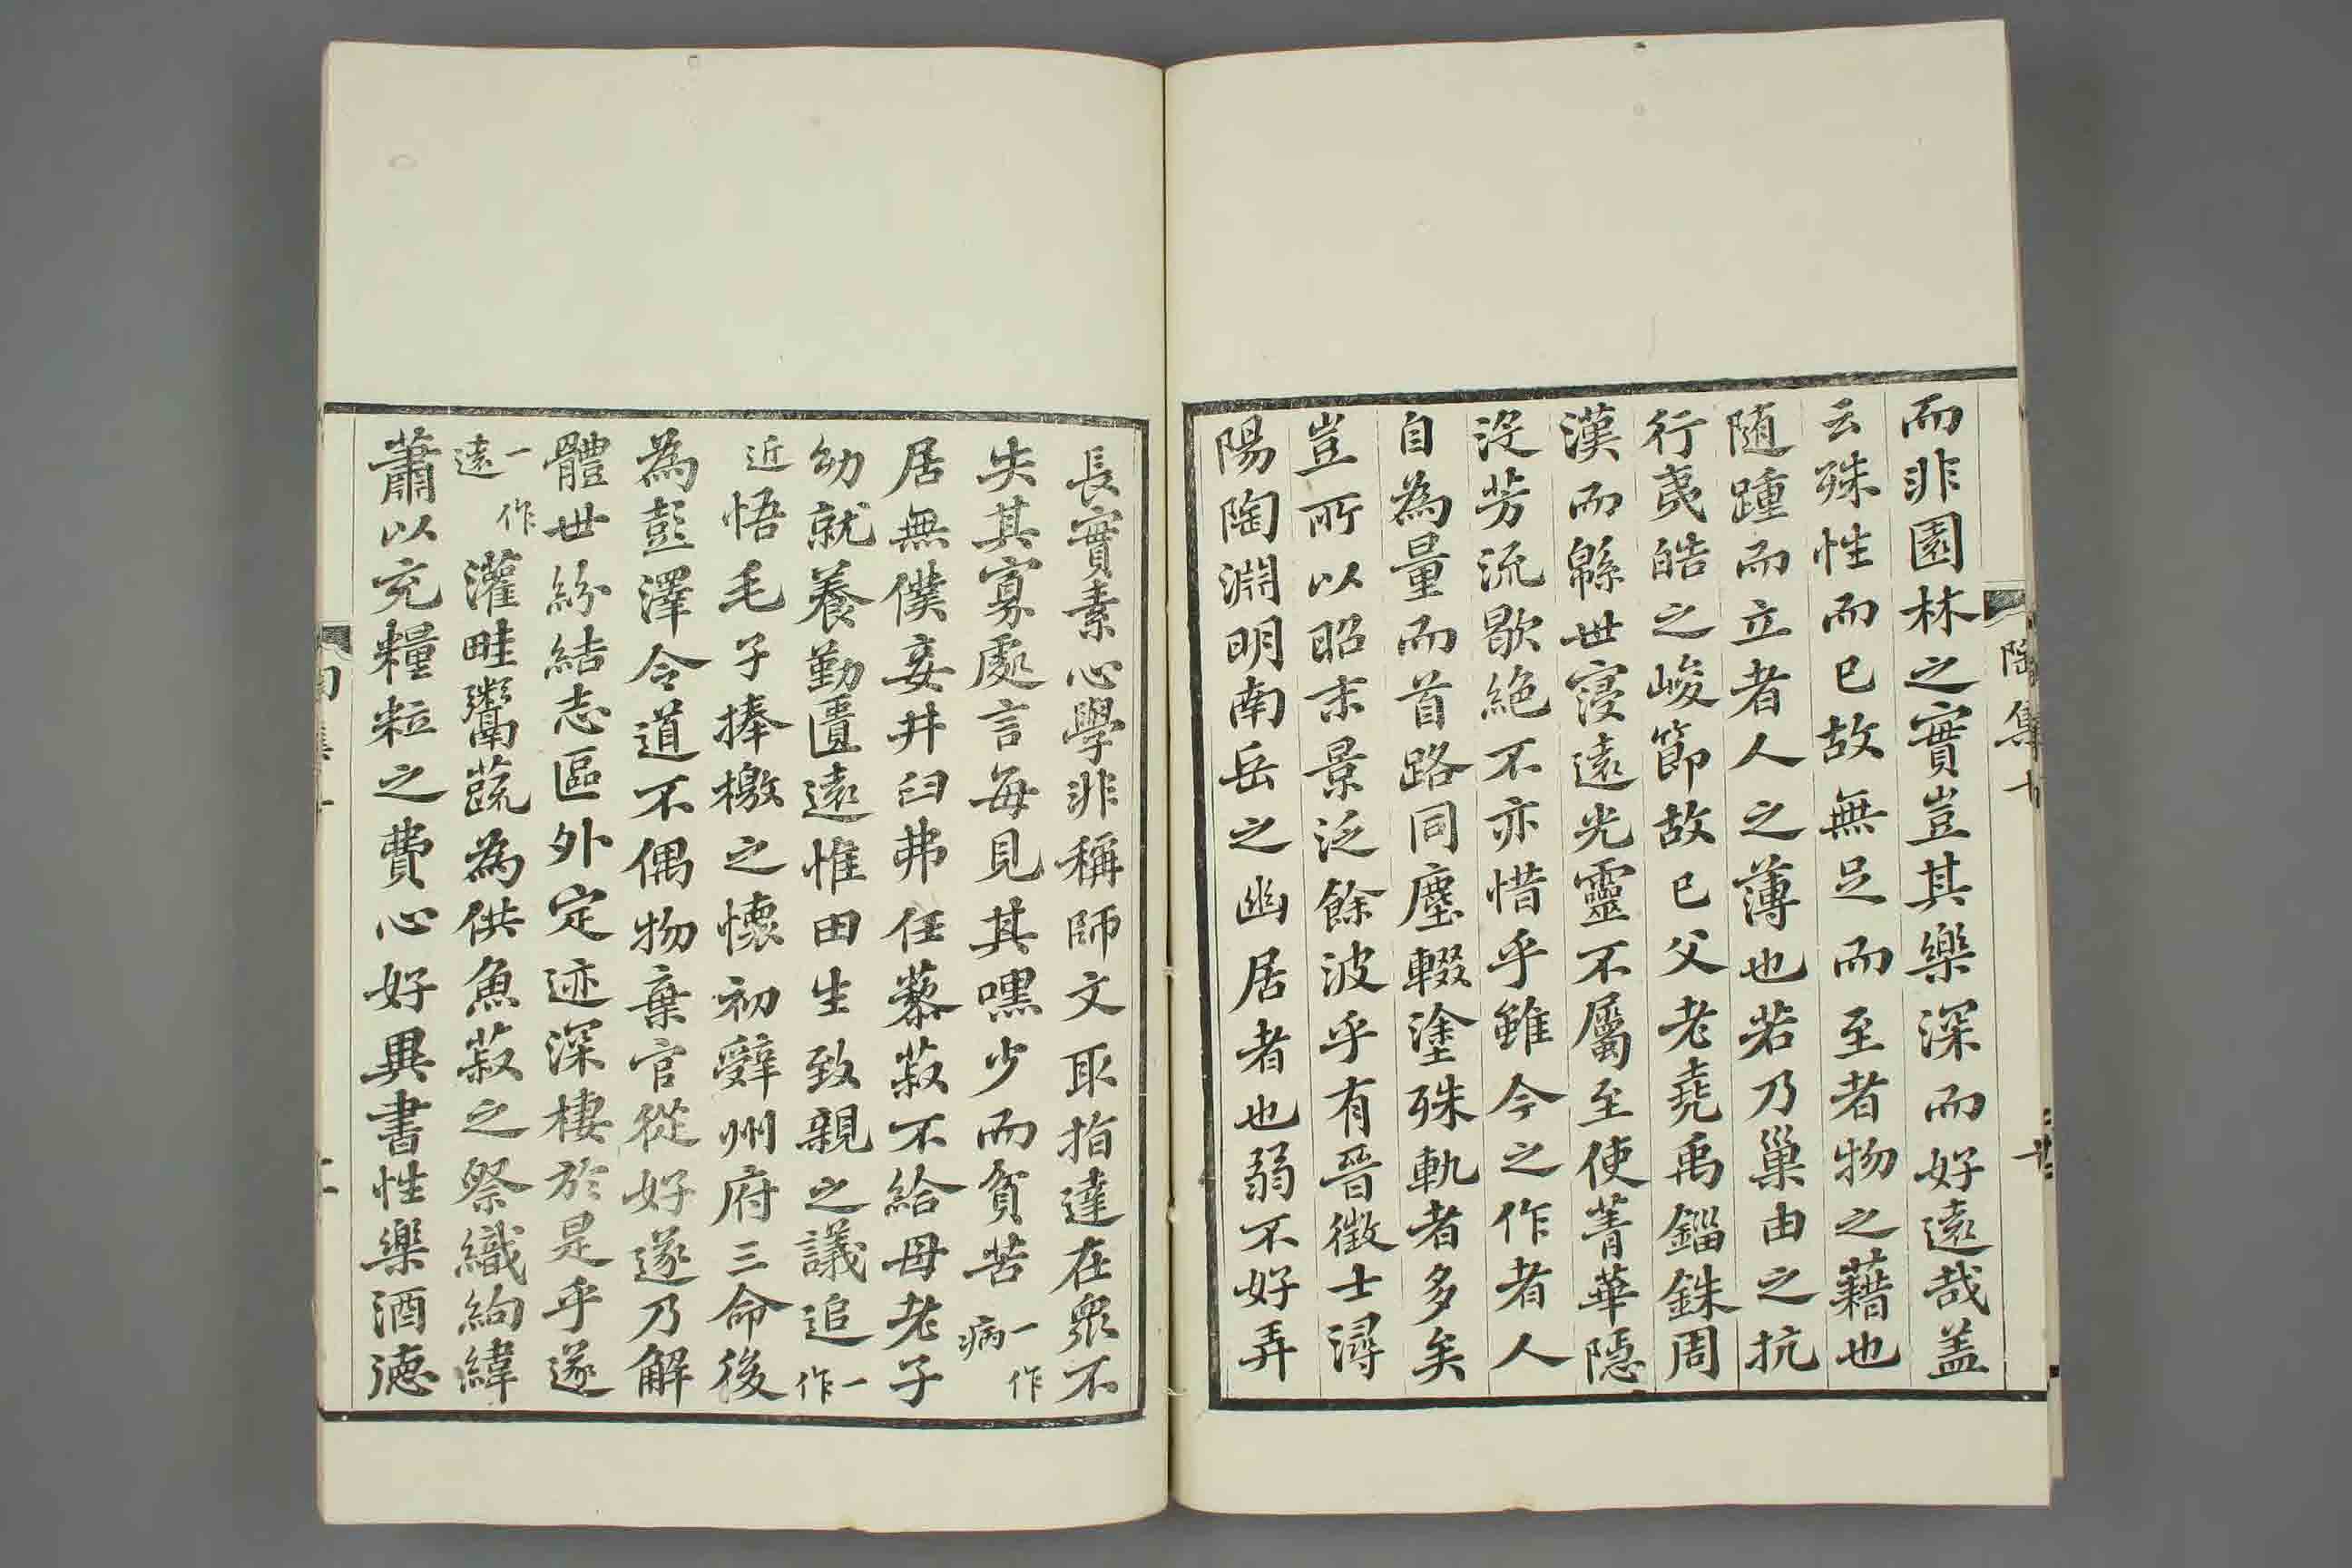 而非園林之實豈其樂深而好遠哉盖
云殊性而已故無足而至者物之藉也
随踵而立者人之薄也若乃巢由之抗
行夷皓之峻節故已父老堯禹錙銖周
漢而緜世寖遠光靈不屬至使菁華隱
沒芳流歇絶不亦惜乎雖今之作者人
自為量而首路同塵輟塗殊軌者多矣
豈所以昭末景泛餘波乎有晉徵士潯
陽陶淵明南岳之幽居者也弱不好弄
長實素心學非稱師文取指達在衆不
失其寡處言每見其嘿少而貧苦一作病
居無僕妾井臼弗任藜菽不給母老子
幼就養勤匱遠惟田生致親之議追一作
近悟毛子捧檄之懷初辤州府三命後
為彭澤令道不偶物棄官從好遂乃解
體世紛結志區外定迹深棲於是乎遂
一作遠灌畦鬻蔬為供魚菽之祭織絇緯
蕭以充糧粒之費心好異書性樂酒德
陶集十